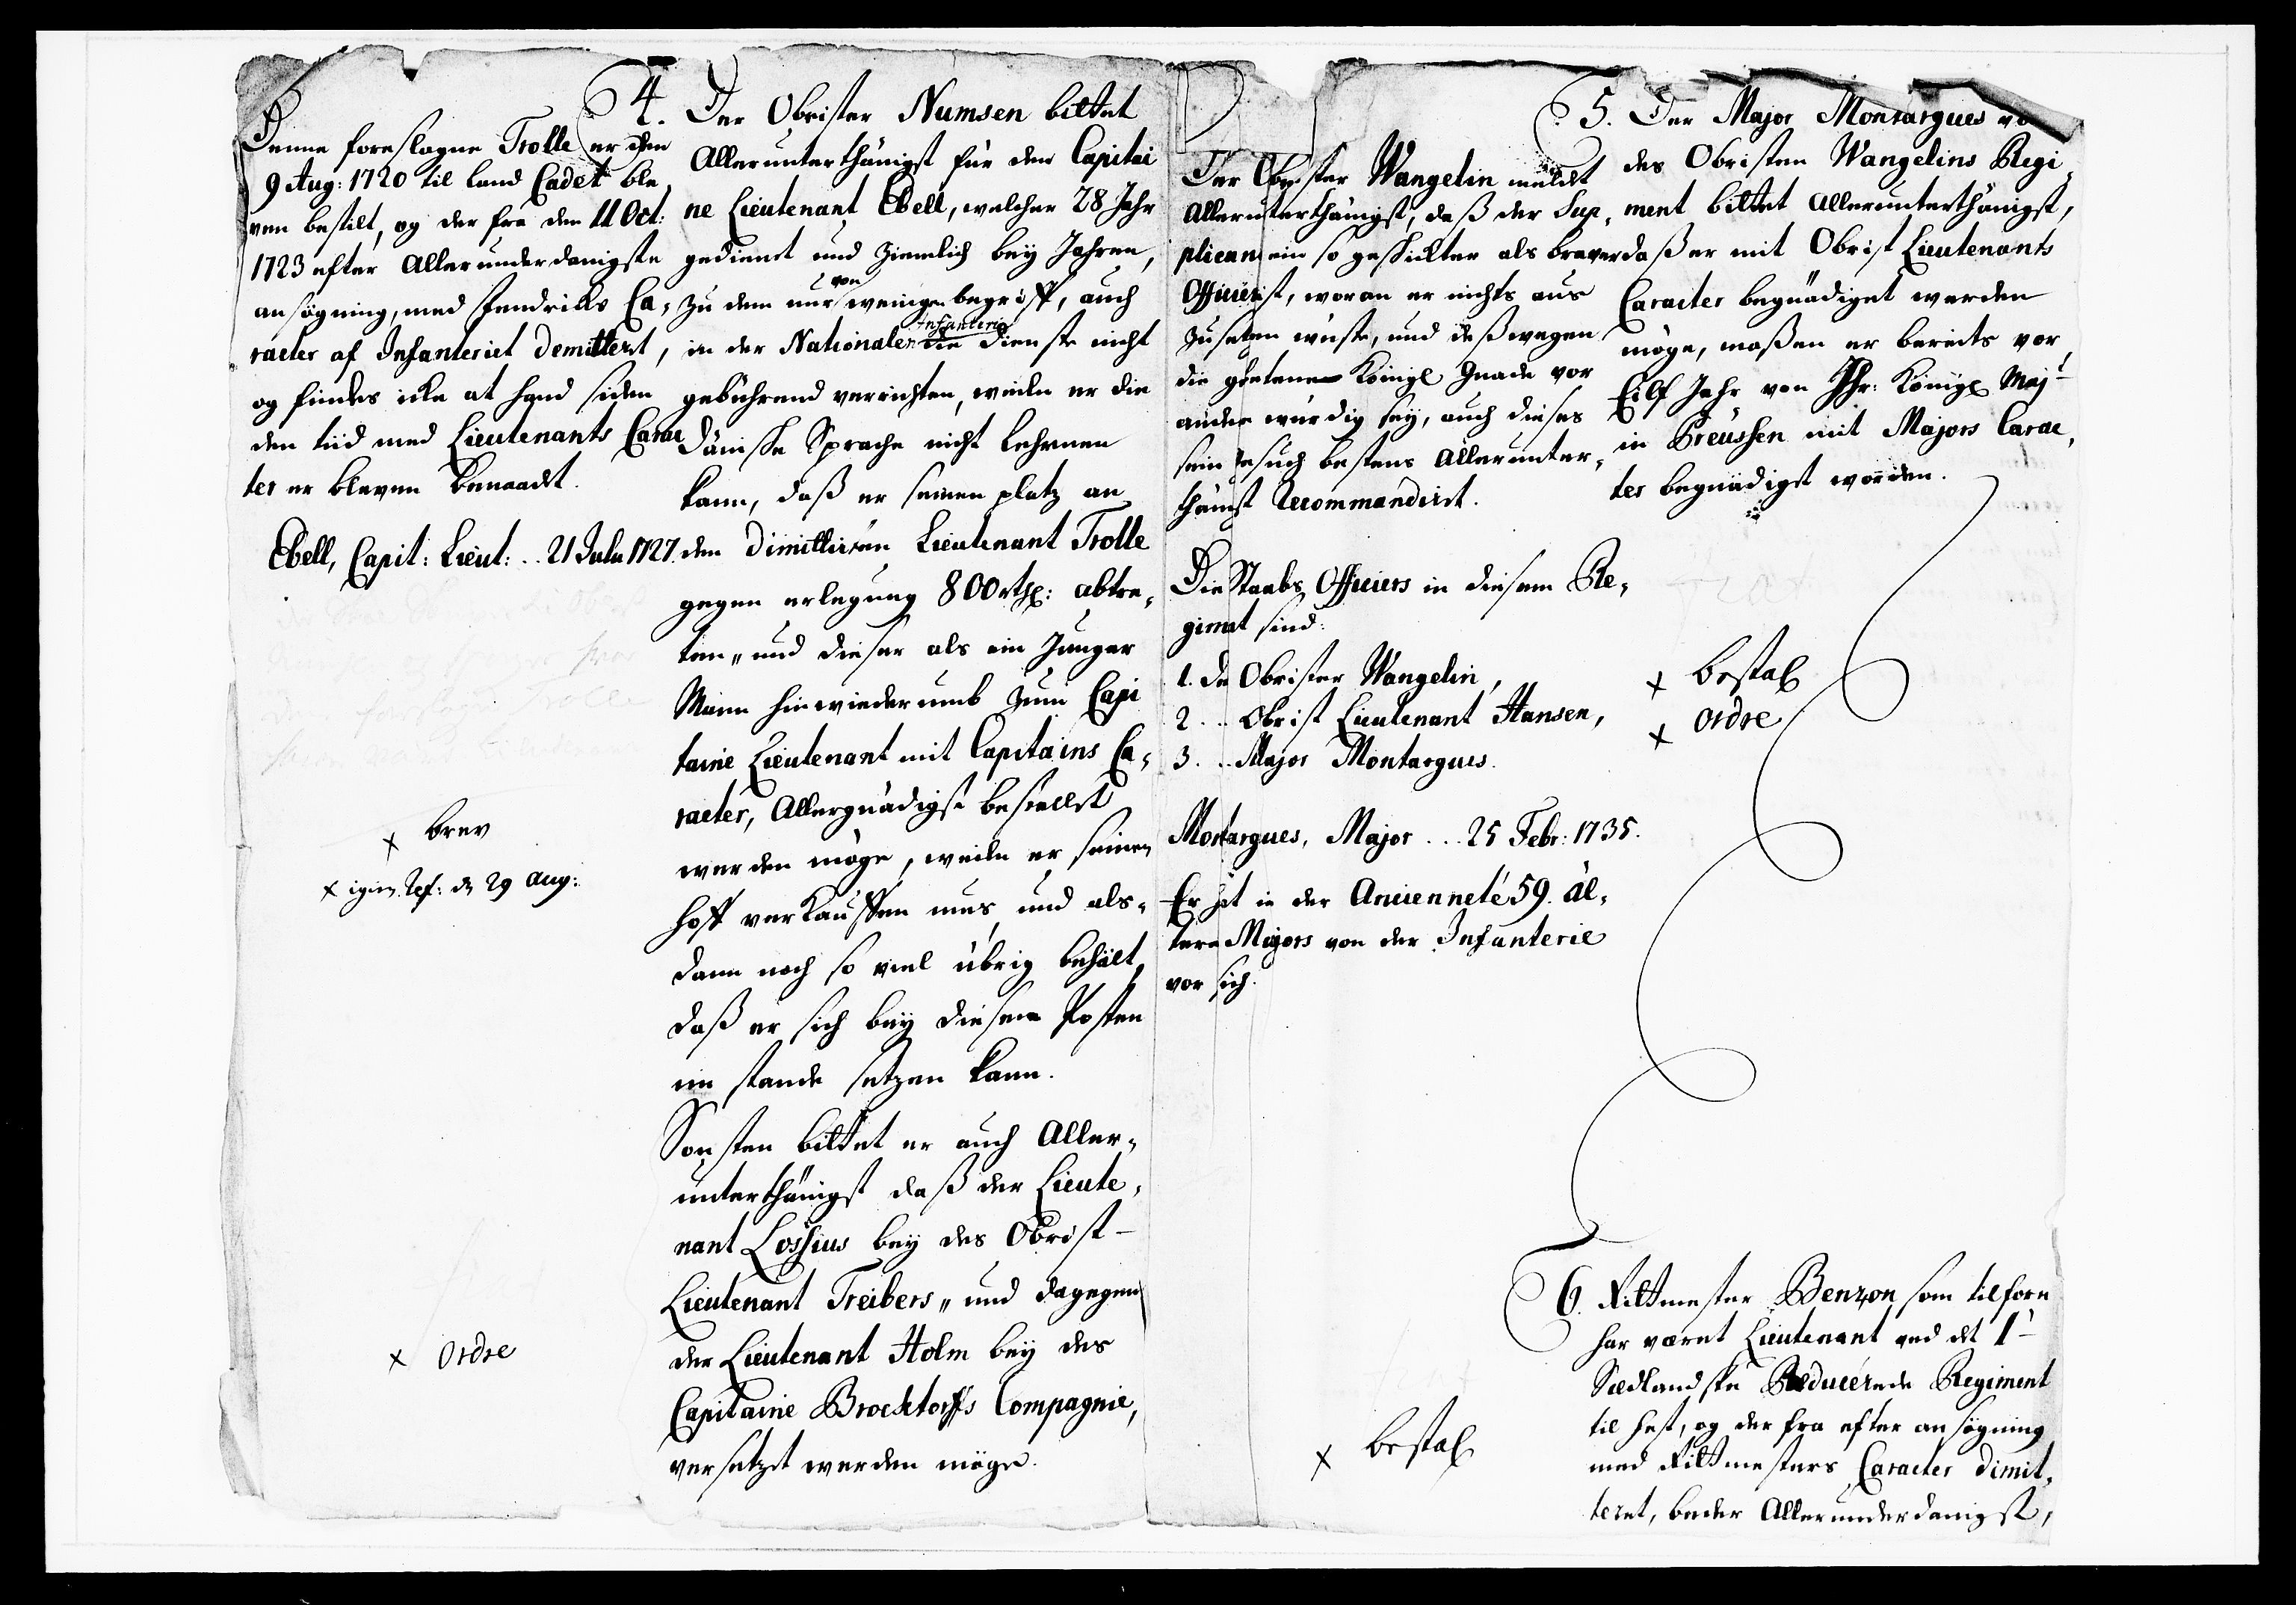 Denne foreslagne Trolle er den
9 Aug: 1720 til land Cadet ble
ven bestilt, og der fra den 11 Oct:
1723 efter Allerunderdanigste
ansøgning, med Fendriks Ca¬
racter af Infanteriet demitteret,
og findes icke at hand siden
den tiid med Lieutenants Carac
ter er bleven benaadet.
Ebell, Capit: Lieut: .. 21 Julii 1727.
x brev
x igien. Ref: d 29 Aug:
x Ordre
4. Der Obrister Numsen bittet
Allerunterthänigst für dem Capitai
ne Lieutenant Ebell, welcher 28 Jahr
gedienet und ziemlich bey Jahren,
zu dem nur von weinigen begriff, auch
in der Nationalen Infanterie die Dienste nicht
gebührend verrichten, weiln er die
Dänische Sprache nicht lehrnen
kann, daß er seinen platz an
den dimittirten Lieutenant Trolle
gegen erlegung 800 rthl: abtre¬
ten„ und dieser als ein Junger
Mann hinwiederumb zum Capi
taine Lieutenant mit Capitains Ca¬
racter, Allergnädigst bestellet
werden möge, weiln er seinen
Hoff verkauffen mus, und als¬
dann noch so viel übrig behält,
daß er sich bey diesem Posten
im stande setzen kann.
Sonsten bittet er auch Aller¬
unterthänigst daß der Lieute¬
nant Lossius bey des Obrist-
Lieutenant Treibers„ und dagegen
der Lieutenant Holm bey des
Capitaine Brocktorffs Compagnie,
versetzet werden möge.
Der Obrister Wangelin meldet
Allerunterthänigst, daß der Sup¬
plicant ein so geschickter als braver
Officier ist, woran er nichts aus
zusetzen wüste, und deßwegen
die gebetene Königl Gnade vor
andere würdig sey, auch dieses
sein gesuch bestens Allerunter¬
thänigst Recommandiret.
Die Staabs Officiers in diesem Re¬
giment sind:
1. Der Obrister Wangelin,
2. .. Obrist Lieutenant Hansen,
3. .. Major Montargues.
Montargues, Major ... 25 Febr: 1735.
Er hat in der Ancienneté 59. äl¬
tere Majors von der Infanterie
vor sich.
x bestal
5. Der Major Montargues vo
des Obristen Wangelins Regi¬
ment bittet Allerunterthänigst,
daß er mit Obrist Lieutenants
Caracter begnädiget werden
möge, maßen er bereits vor
Eilf Jahr von Ihr: Königl Majt
in Preussen mit Majors Carac¬
ter begnädiget worden.
x bestal
x Ordre
6. Rittmester Benzon som tilforn
har været Lieutenant ved det 1te
Siællandske Reducerede Regiment
til hest, og der fra efter ansøgning
med Rittmesters Caracter dimit¬
teret, beder Allerunderdanigst,